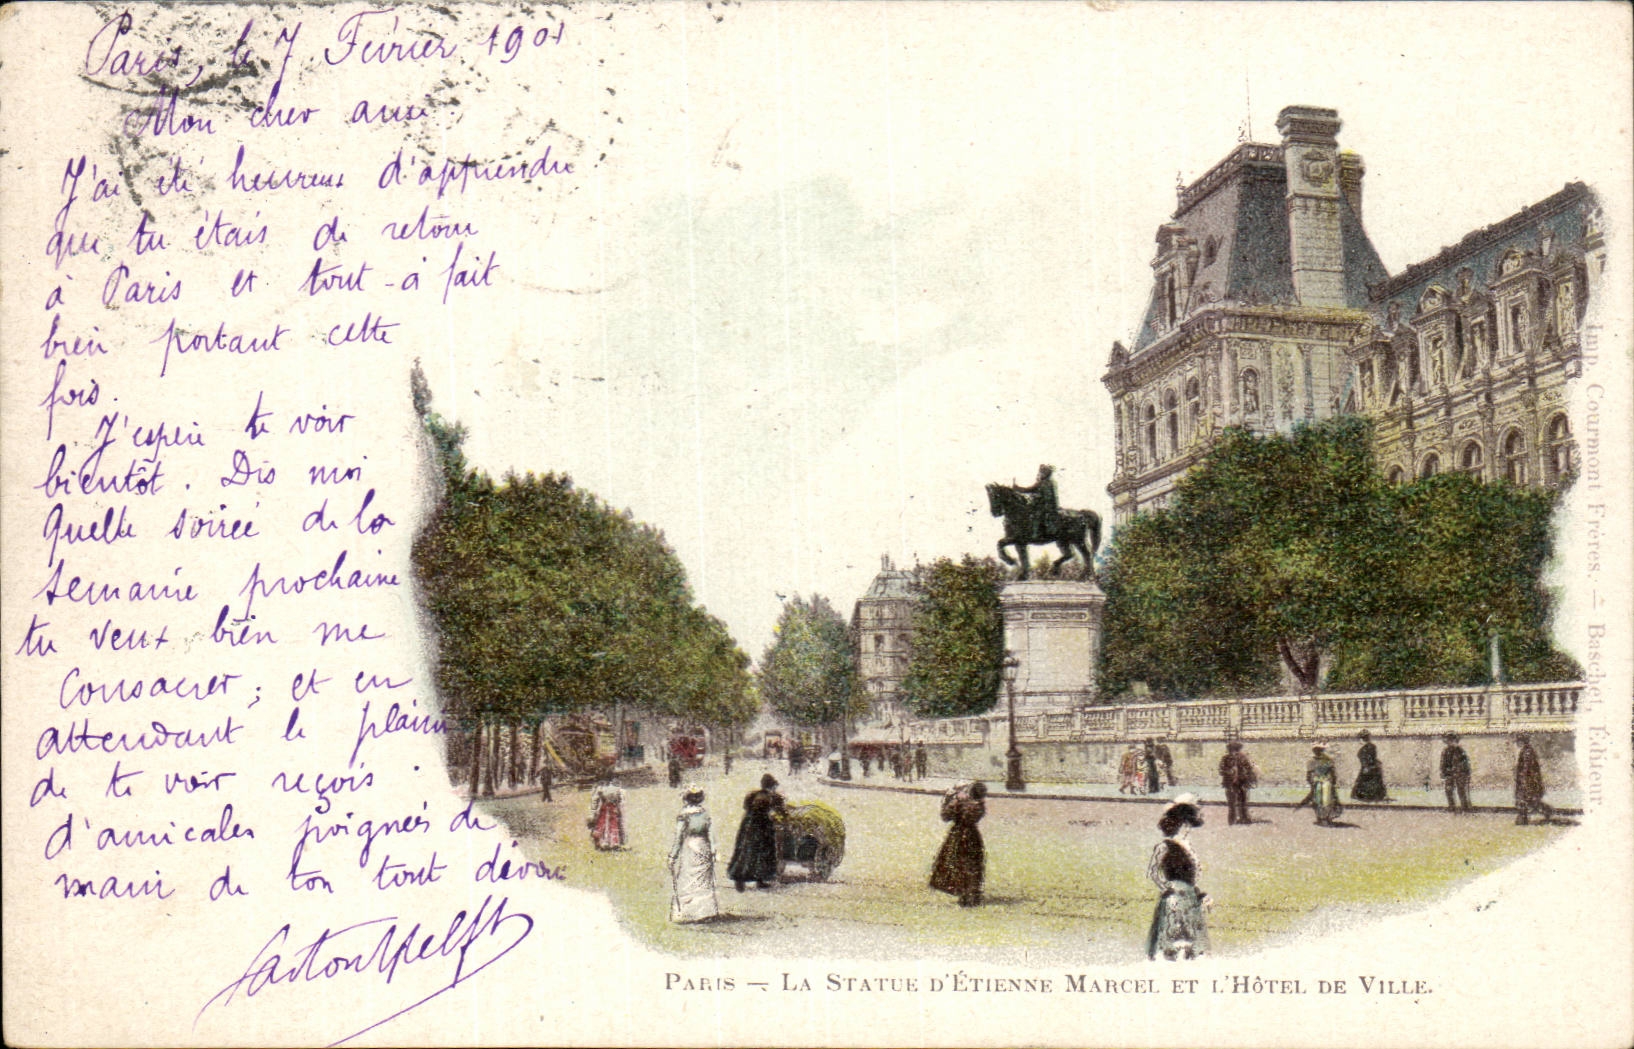 Paris, le 7 Février 1901
Mon cher ami
J'ai été heureux d'apprendre
que tu étais de retour
à Paris et tout-à fait
bien portant cette
fois.
J'espère te voir
bientôt. Dis moi
quelle soirée de la
semaine prochaine
tu veux bien me
consacrer ; et en
attendant le plaisir
de te voir reçois
d'amicales poignées de
main de ton tout dévoué
PARIS — LA STATUE D'ÉTIENNE MARCEL ET L'HÔTEL DE VILLE.
Imp. Courmont Frères. — Baschet, Éditeur.